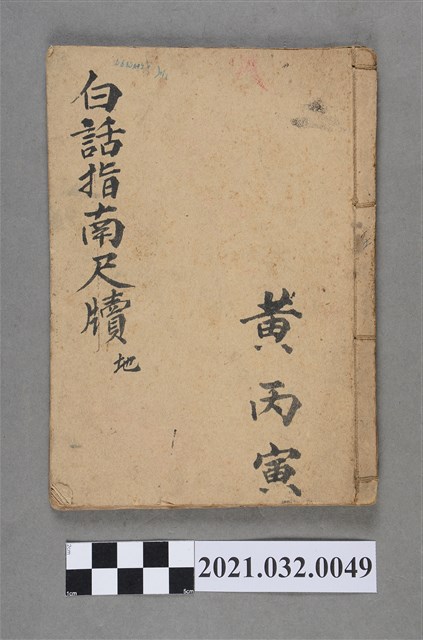 白話指南尺牘 地
黃丙寅
2021.032.0049
1cm
5cm